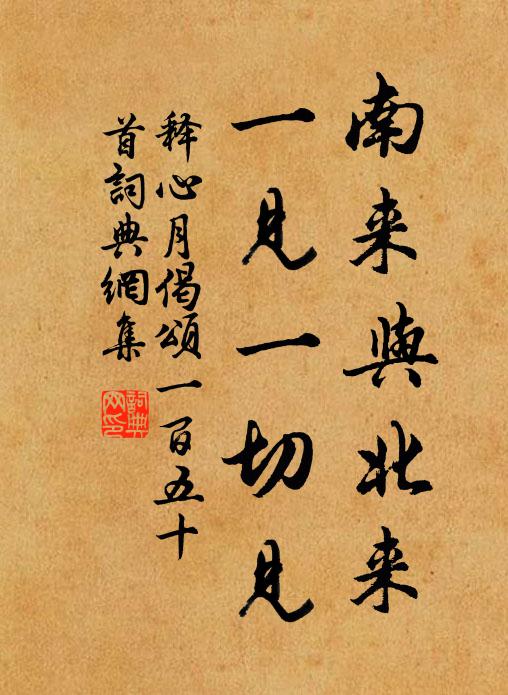 南来與北来
一見一切見
释心月偈頌一百五十
首詞典網集
詞典
网印